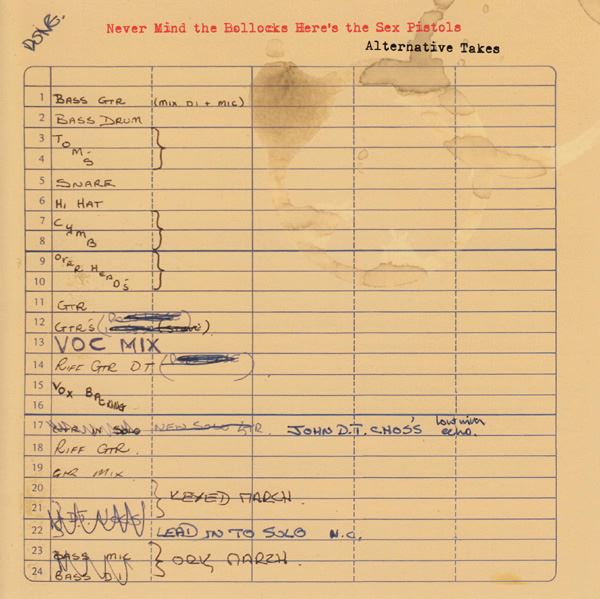 DONE.
Never Mind the Bollocks Here's the Sex Pistols
Alternative Takes
1 BASS GTR (MIX DI + MIC)
2 BASS DRUM
3 TOM-S
4
5 SNARE
6 HI HAT
7 CYMB
8
9 OVER HEAD'S
10
11 GTR
12 GTR'S
13 VOC MIX
14 RIFF GTR DT
15 VOX BACKING
16
17 SOLO NEW SOLO GTR. JOHN D.T. CHOS'S
echo.
18 RIFF GTR.
19 GTR MIX.
20 KEYED MARCH.
21
22 LEAD IN TO SOLO N.C.
23 BASS MIC
24 BASS DI